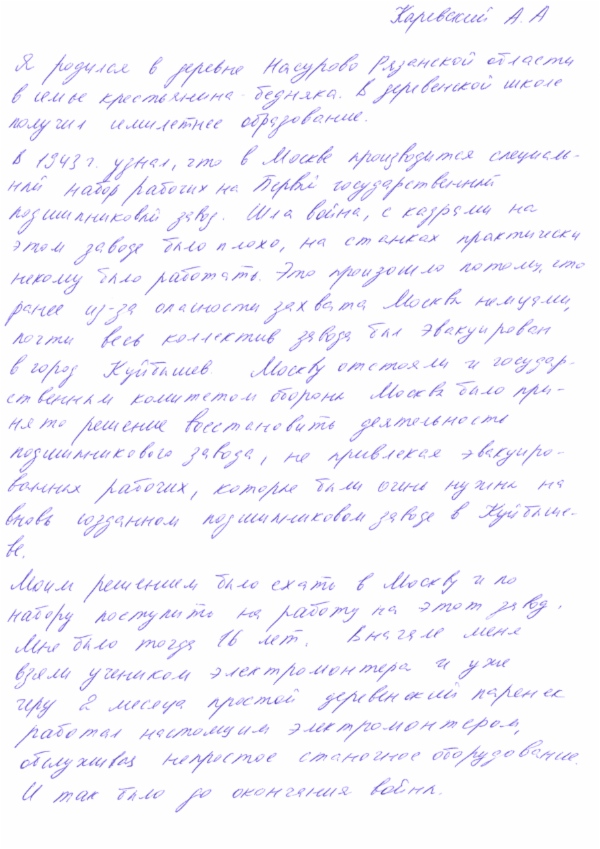 Каревский А. А
Я родился в деревне Насурово Рязанской области
в семье крестьянина-бедняка. В деревенской школе
получил семилетнее образование.
В 1943 г. узнал, что в Москве производится специаль-
ный набор рабочих на Первый государственный
подшипниковый завод. Шла война, с кадрами на
этом заводе было плохо, на станках практически
некому было работать. Это произошло потому, что
ранее из-за опасности захвата Москвы немцами,
почти весь коллектив завода был эвакуирован
в город Куйбышев. Москву отстояли и государ-
ственным комитетом обороны Москвы было при-
нято решение восстановить деятельность
подшипникового завода, не привлекая эвакуиро-
ванных рабочих, которые были очень нужны на
вновь созданном подшипниковом заводе в Куйбыше-
ве.
Моим решением было ехать в Москву и по
набору поступить на работу на этот завод.
Мне было тогда 16 лет. Вначале меня
взяли учеником электромонтера и уже
чрз 2 месяца простой деревенский паренек
работал настоящим электромонтером,
обслуживая непростое станочное оборудование.
И так было до окончания войны.